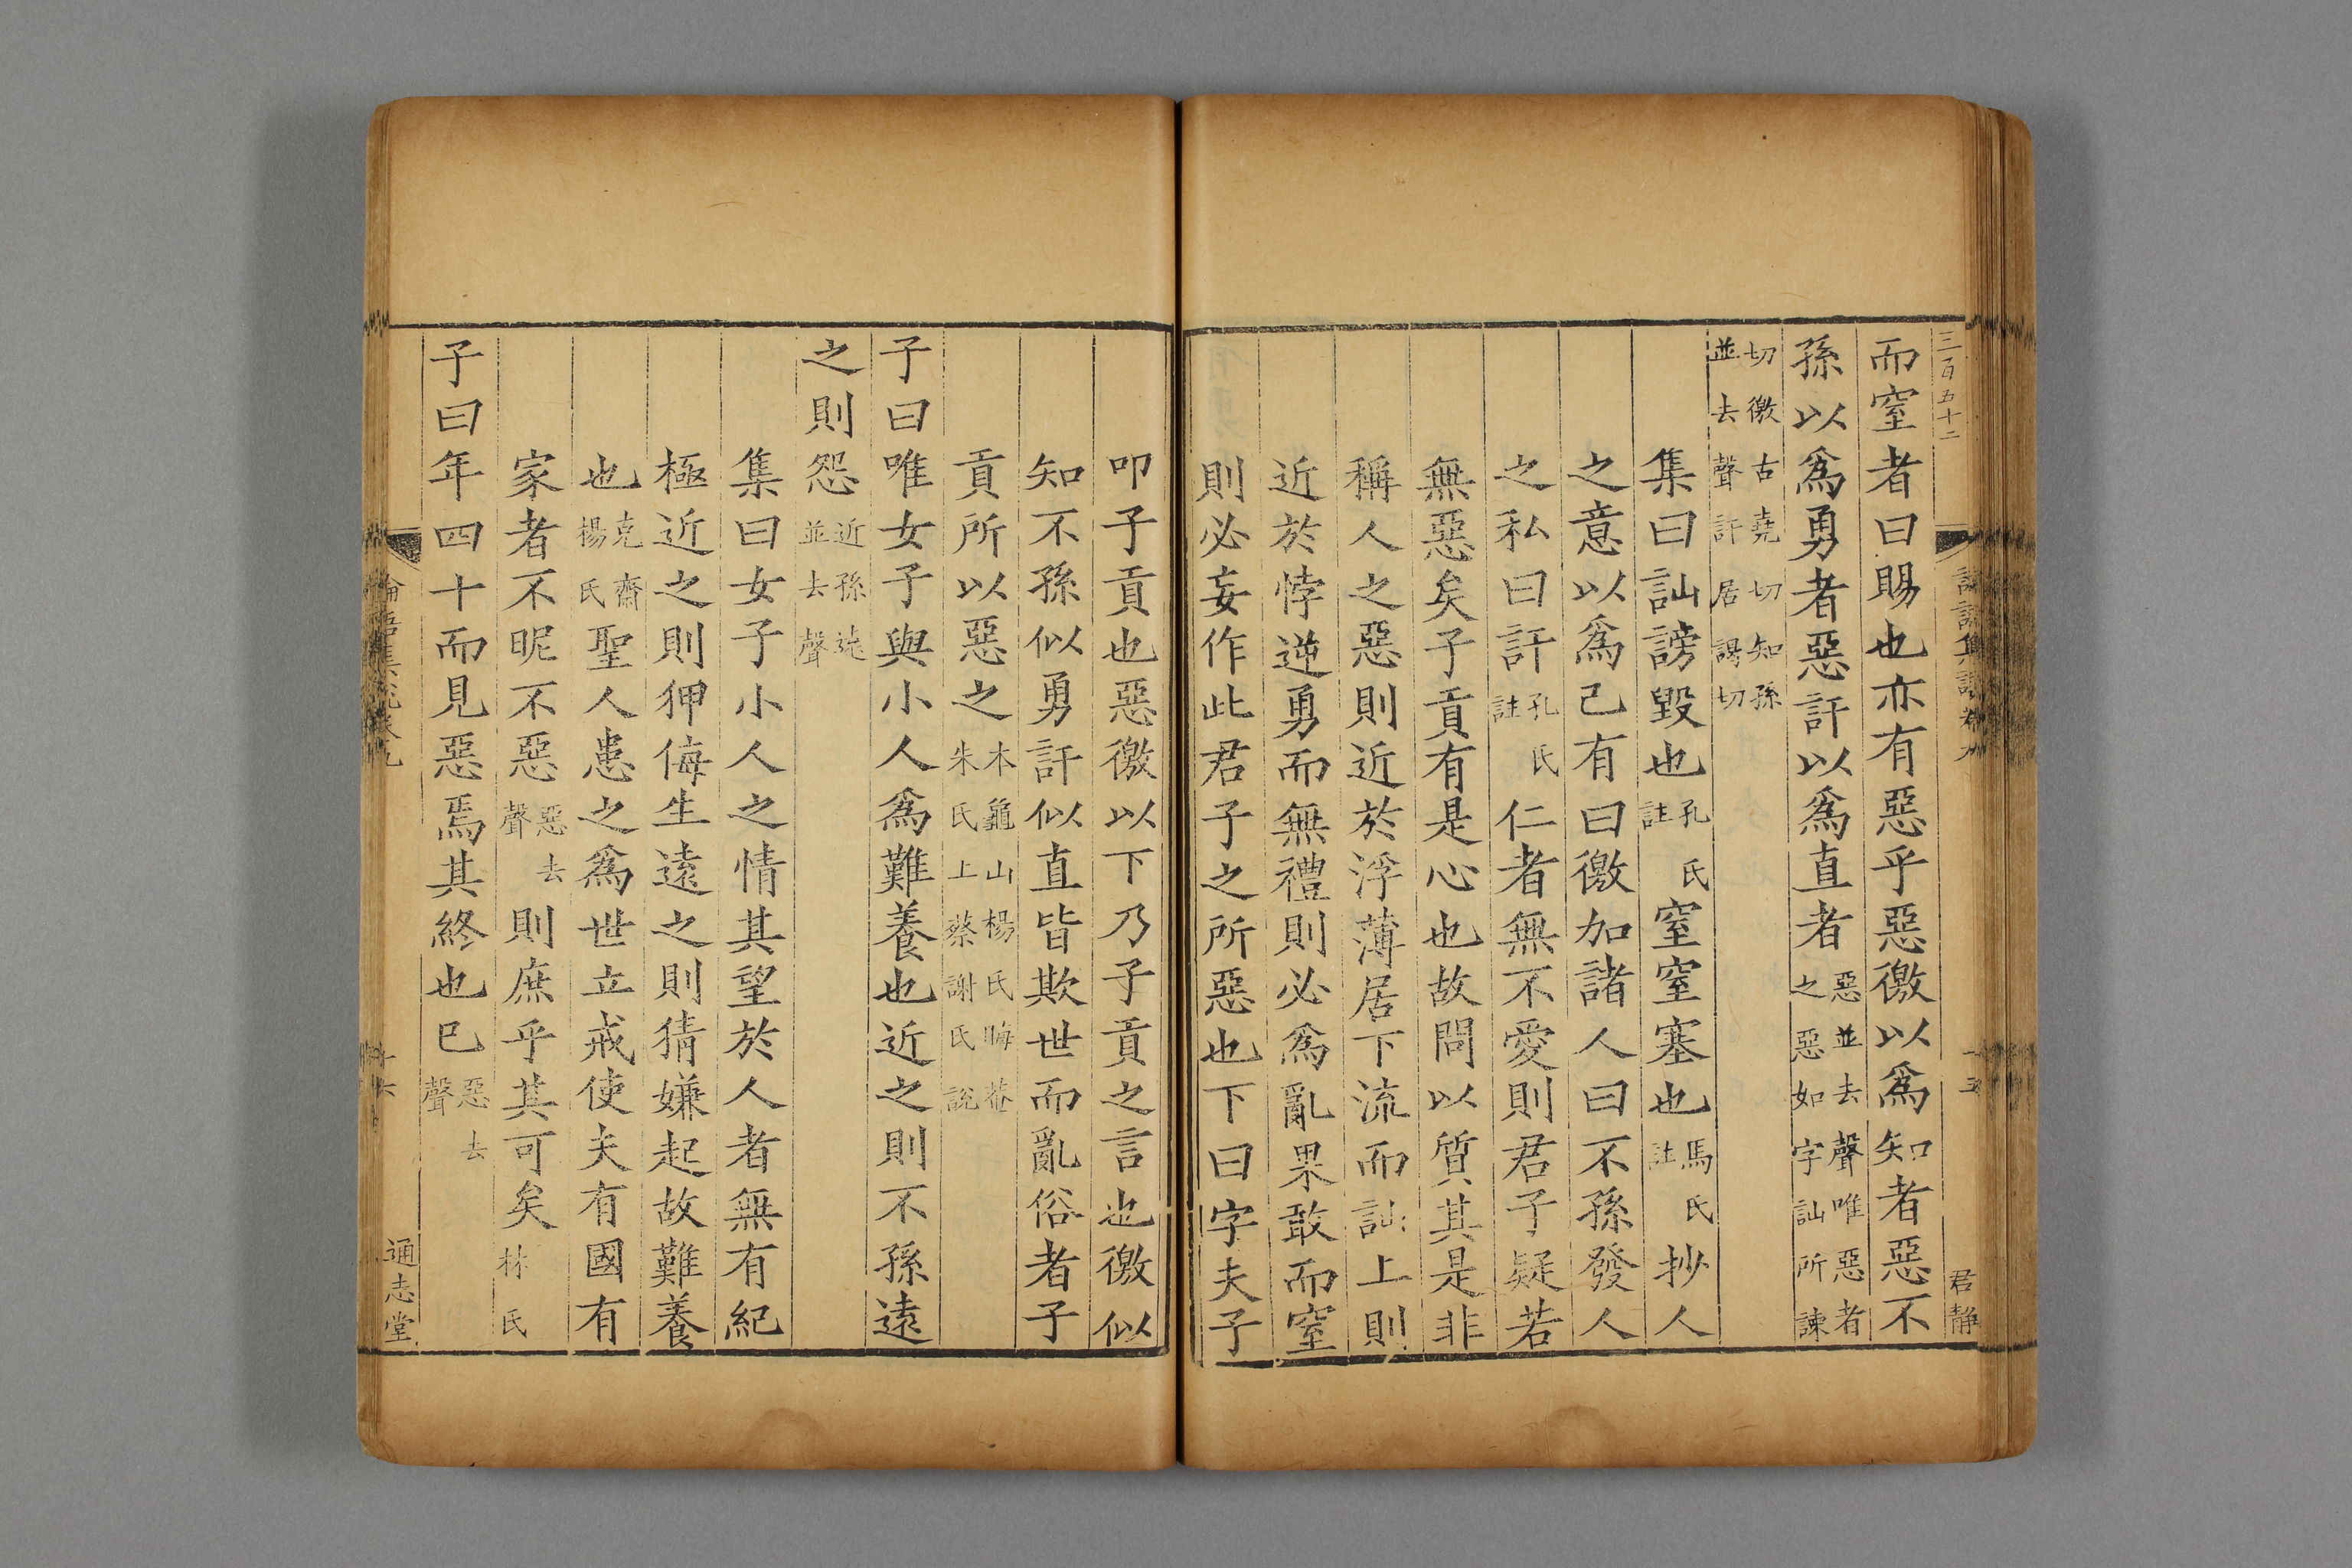 三百五十二
君靜
而窒者曰賜也亦有惡乎惡徼以爲知者惡不
孫以爲勇者惡訐以爲直者惡並去聲唯惡者之惡如字訕所諫
切徼古堯切知孫並去聲訐居謁切
集曰訕謗毀也孔氏註窒窒塞也馬氏註抄人
之意以爲己有曰徼加諸人曰不孫發人
之私曰訐孔氏註仁者無不愛則君子疑若
無惡矣子貢有是心也故問以質其是非
稱人之惡則近於浮薄居下流而訕上則
近於悖逆勇而無禮則必爲亂果敢而窒
則必妄作此君子之所惡也下曰字夫子
叩子貢也惡徼以下乃子貢之言也徼似
知不孫似勇訐似直皆欺世而亂俗者子
貢所以惡之本龜山楊氏晦菴朱氏上蔡謝氏說
子曰唯女子與小人爲難養也近之則不孫遠
之則怨近孫遠並去聲
集曰女子小人之情其望於人者無有紀
極近之則狎侮生遠之則猜嫌起故難養
也克齋楊氏聖人患之爲世立戒使夫有國有
家者不昵不惡惡去聲則庶乎其可矣林氏
子曰年四十而見惡焉其終也巳惡去聲
通志堂